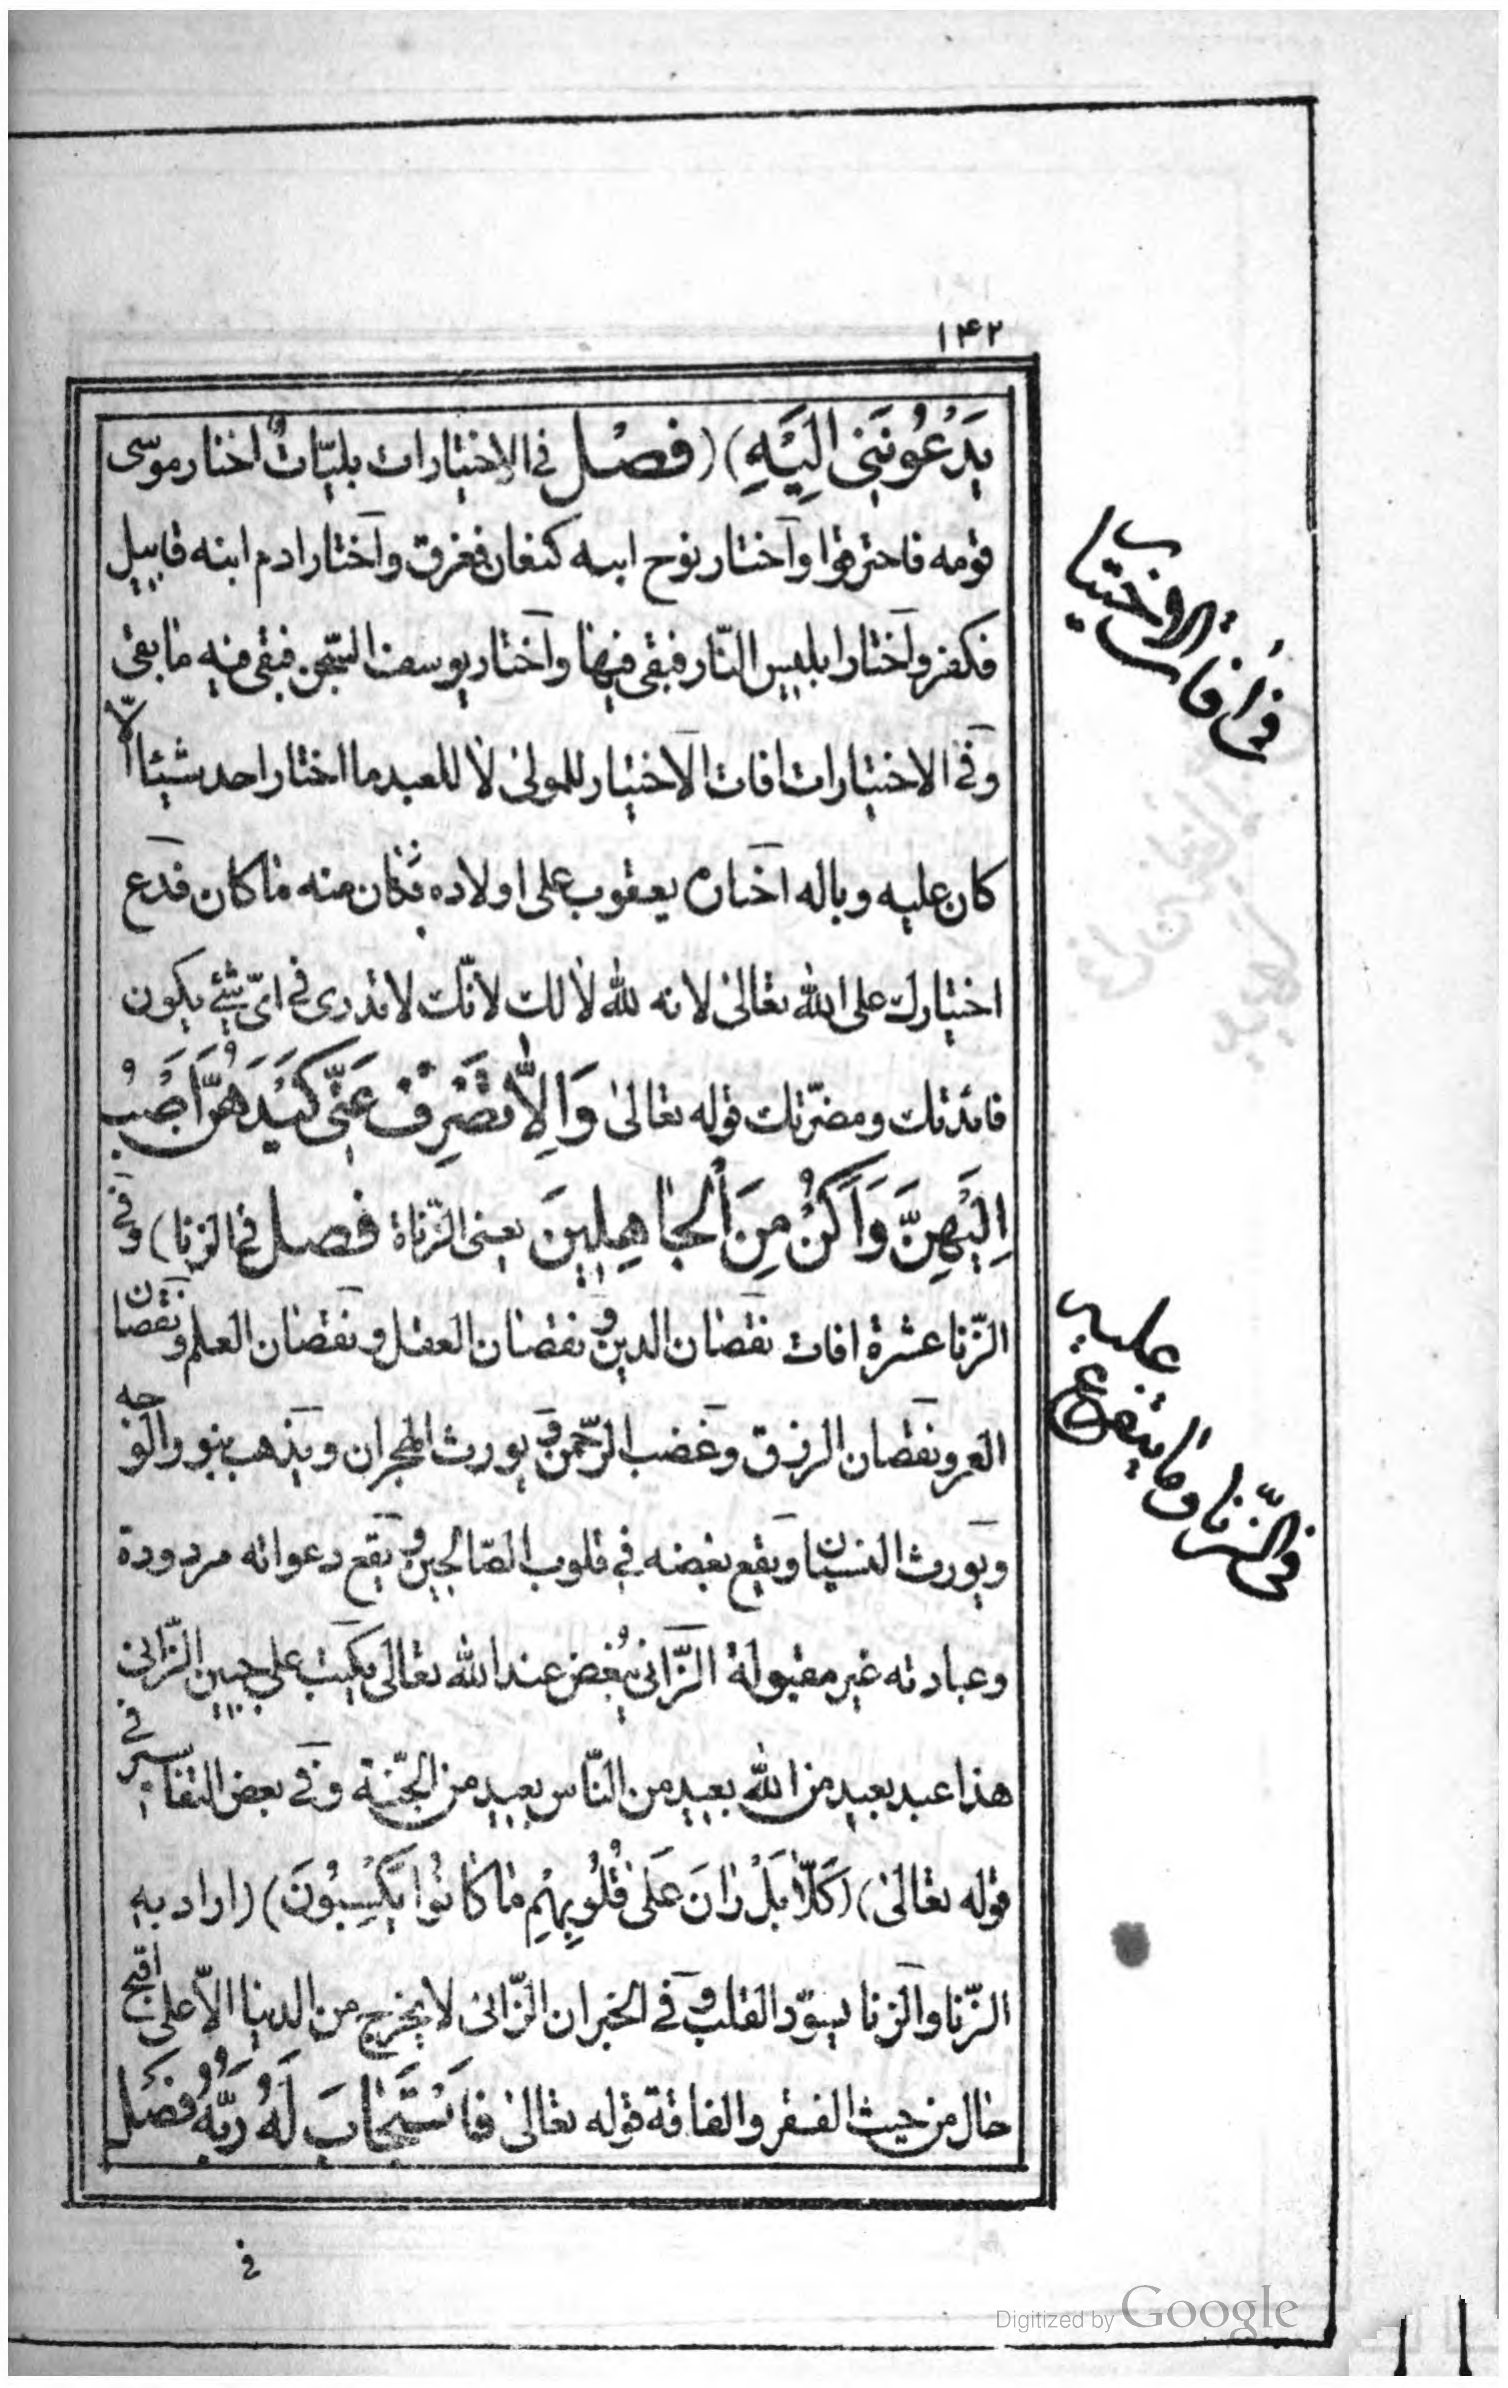 ١٤٢
يَدْعُونَنِي اِلَيْهِ) (فصل في الاختيارات بليّات اختار موسى
قومه فاحترقوا واختار نوح ابنه كنعان فغرق واختار ادم ابنه قابيل
فكفر واختار ابليس النّار فبقى فيها واختار يوسف السّجن فبقى فيه ما بقى
وفي الاختيارات افات الاختيار للمولى لا للعبد ما اختار احد شيئا الّا
كان عليه وباله اختار يعقوب على اولاده فكان منه ما كان فدع
اختيارك على الله تعالى لانه لله لا لك لانّك لا تدرى في اىّ شئ يكون
فائدتك ومضرّتك قوله تعالى وَاِلَّا تَصْرِفْ عَنِّي كَيْدَهُنَّ اَصْبُ
اِلَيْهِنَّ وَاَكُنْ مِنَ الْجَاهِلِينَ يعنى الزّناة فصل في الزنا) وفي
الزّنا عشرة افات نقصان الدين ونقصان العقل ونقصان العلم ونقصان
العمر ونقصان الرزق وغضب الرّحمن ويورث الهجران ويذهب بنور الوجه
ويورث النسيان ويقع بغضه في قلوب الصّالحين ويقع دعواته مردودة
وعبادته غير مقبولة الزّانى يبغض عند الله تعالى يكتب على جبين الزّانى
هذا عبد بعيد من الله بعيد من النّاس بعيد من الجنّة وفي بعض التفاسير في
قوله تعالى) (كَلَّا بَلْ رَانَ عَلَى قُلُوبِهِمْ مَا كَانُوا يَكْسِبُونَ) (اراد به
الزّنا والزنا يسوّد القلب وفي الخبر ان الزّانى لا يخرج من الدنيا الّا على اقبح
حال من حيث الفقر والفاقة قوله تعالى فَاسْتَجَابَ لَهُ رَبُّهُ فصل
في
في افات الاختيار
في الزّنا وما يتفرع
عليه
Digitized by Google